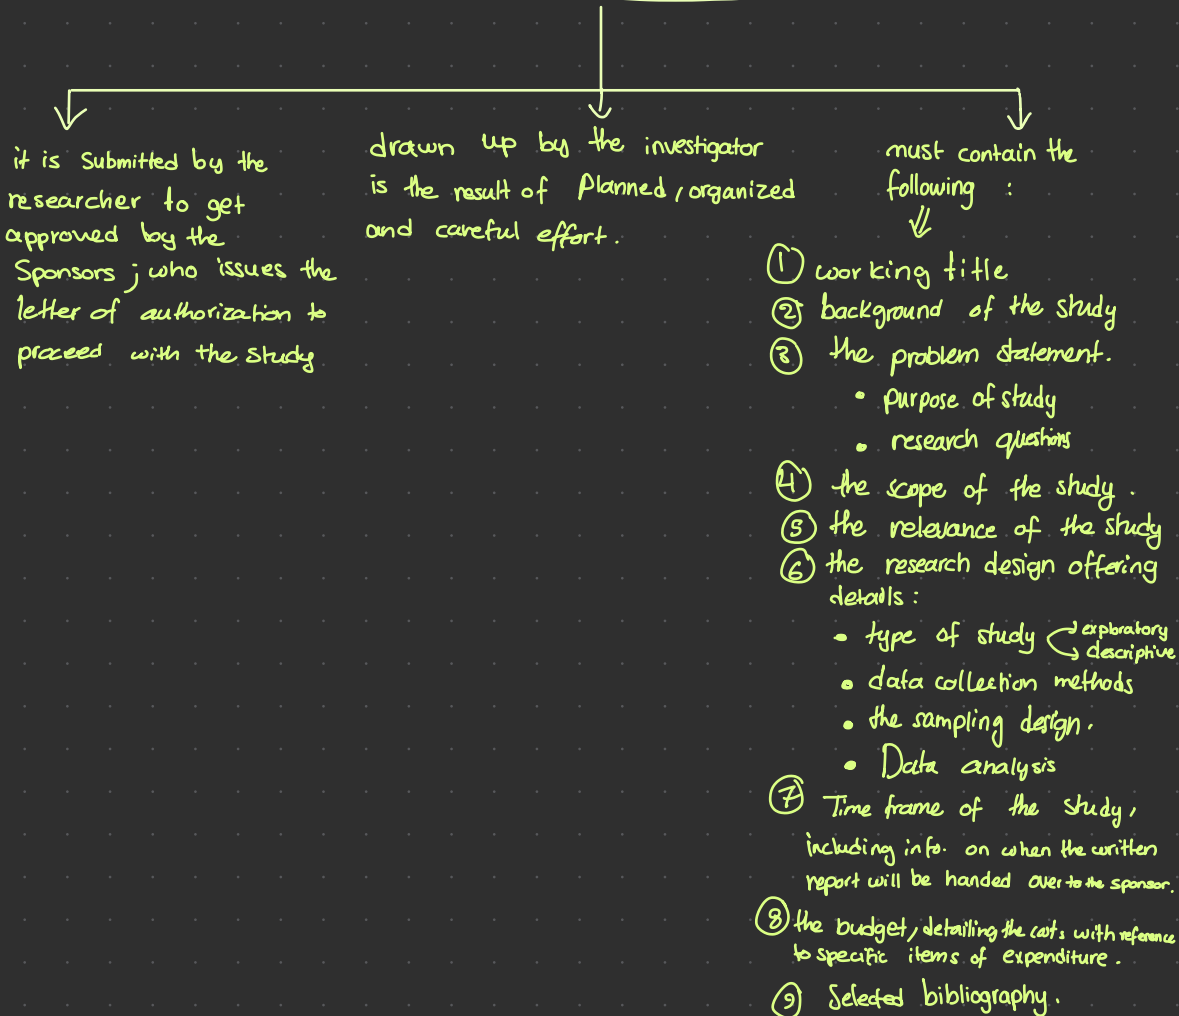 it is Submitted by the
researcher to get
approved by the
Sponsors ; who issues the
letter of authorization to
proceed with the study
drawn up by the investigator
is the result of Planned, organized
and careful effort.
must contain the
following :
① working title
② background of the study
③ the problem statement.
• purpose of study
• research questions
④ the scope of the study.
⑤ the relevance of the study
⑥ the research design offering
details :
• type of study exploratory
descriptive
• data collection methods
• the sampling design.
• Data analysis
⑦ Time frame of the study,
including info. on when the written
report will be handed over to the sponsor.
⑧ the budget, detailing the costs with reference
to specific items of expenditure.
⑨ Selected bibliography.